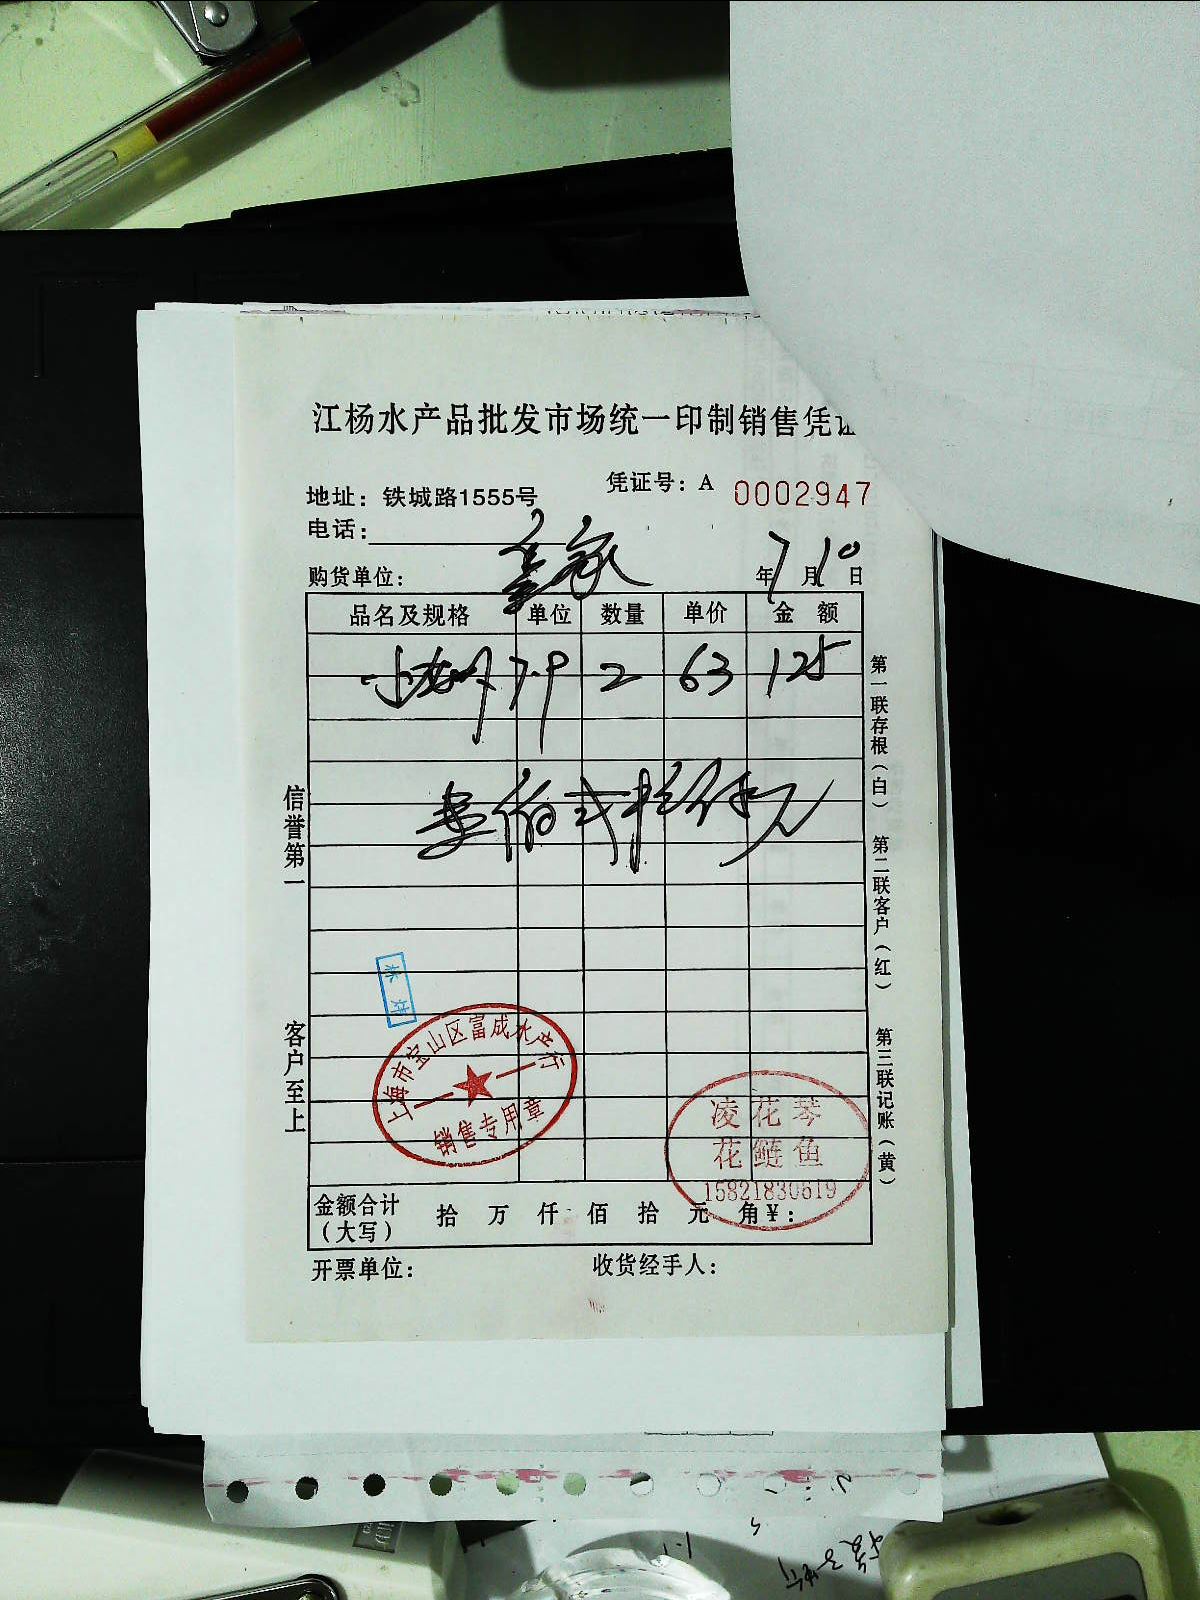 江杨水产品批发市场统一印制销售凭证
地址：铁城路1555号
凭证号：A 0002947
电话：
购货单位：
年7月10日
品名及规格 单位 数量 单价 金额
小龙虾 7.9 2 63 125
壹佰弍拾伍元
信誉第一
客户至上
第一联存根（白）
第二联客户（红）
第三联记账（黄）
上海市宝山区富成水产行
销售专用章
凌花琴
花鲢鱼
15821830619
金额合计（大写） 拾 万 仟 佰 拾 元 角¥：
开票单位：
收货经手人：